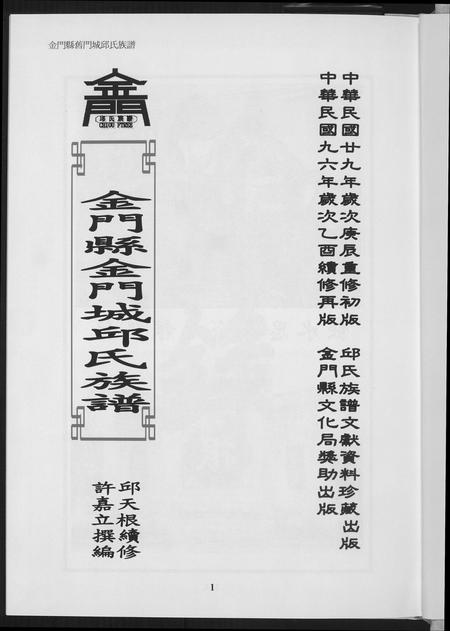 金門縣舊門城邱氏族譜
中華民國廿九年歲次庚辰重修初版　邱氏族譜文獻資料珍藏出版
中華民國九六年歲次乙酉續修再版　金門縣文化局獎助出版
金門
邱氏族譜
金門縣金門城邱氏族譜
邱天根續修
許嘉立撰編
1